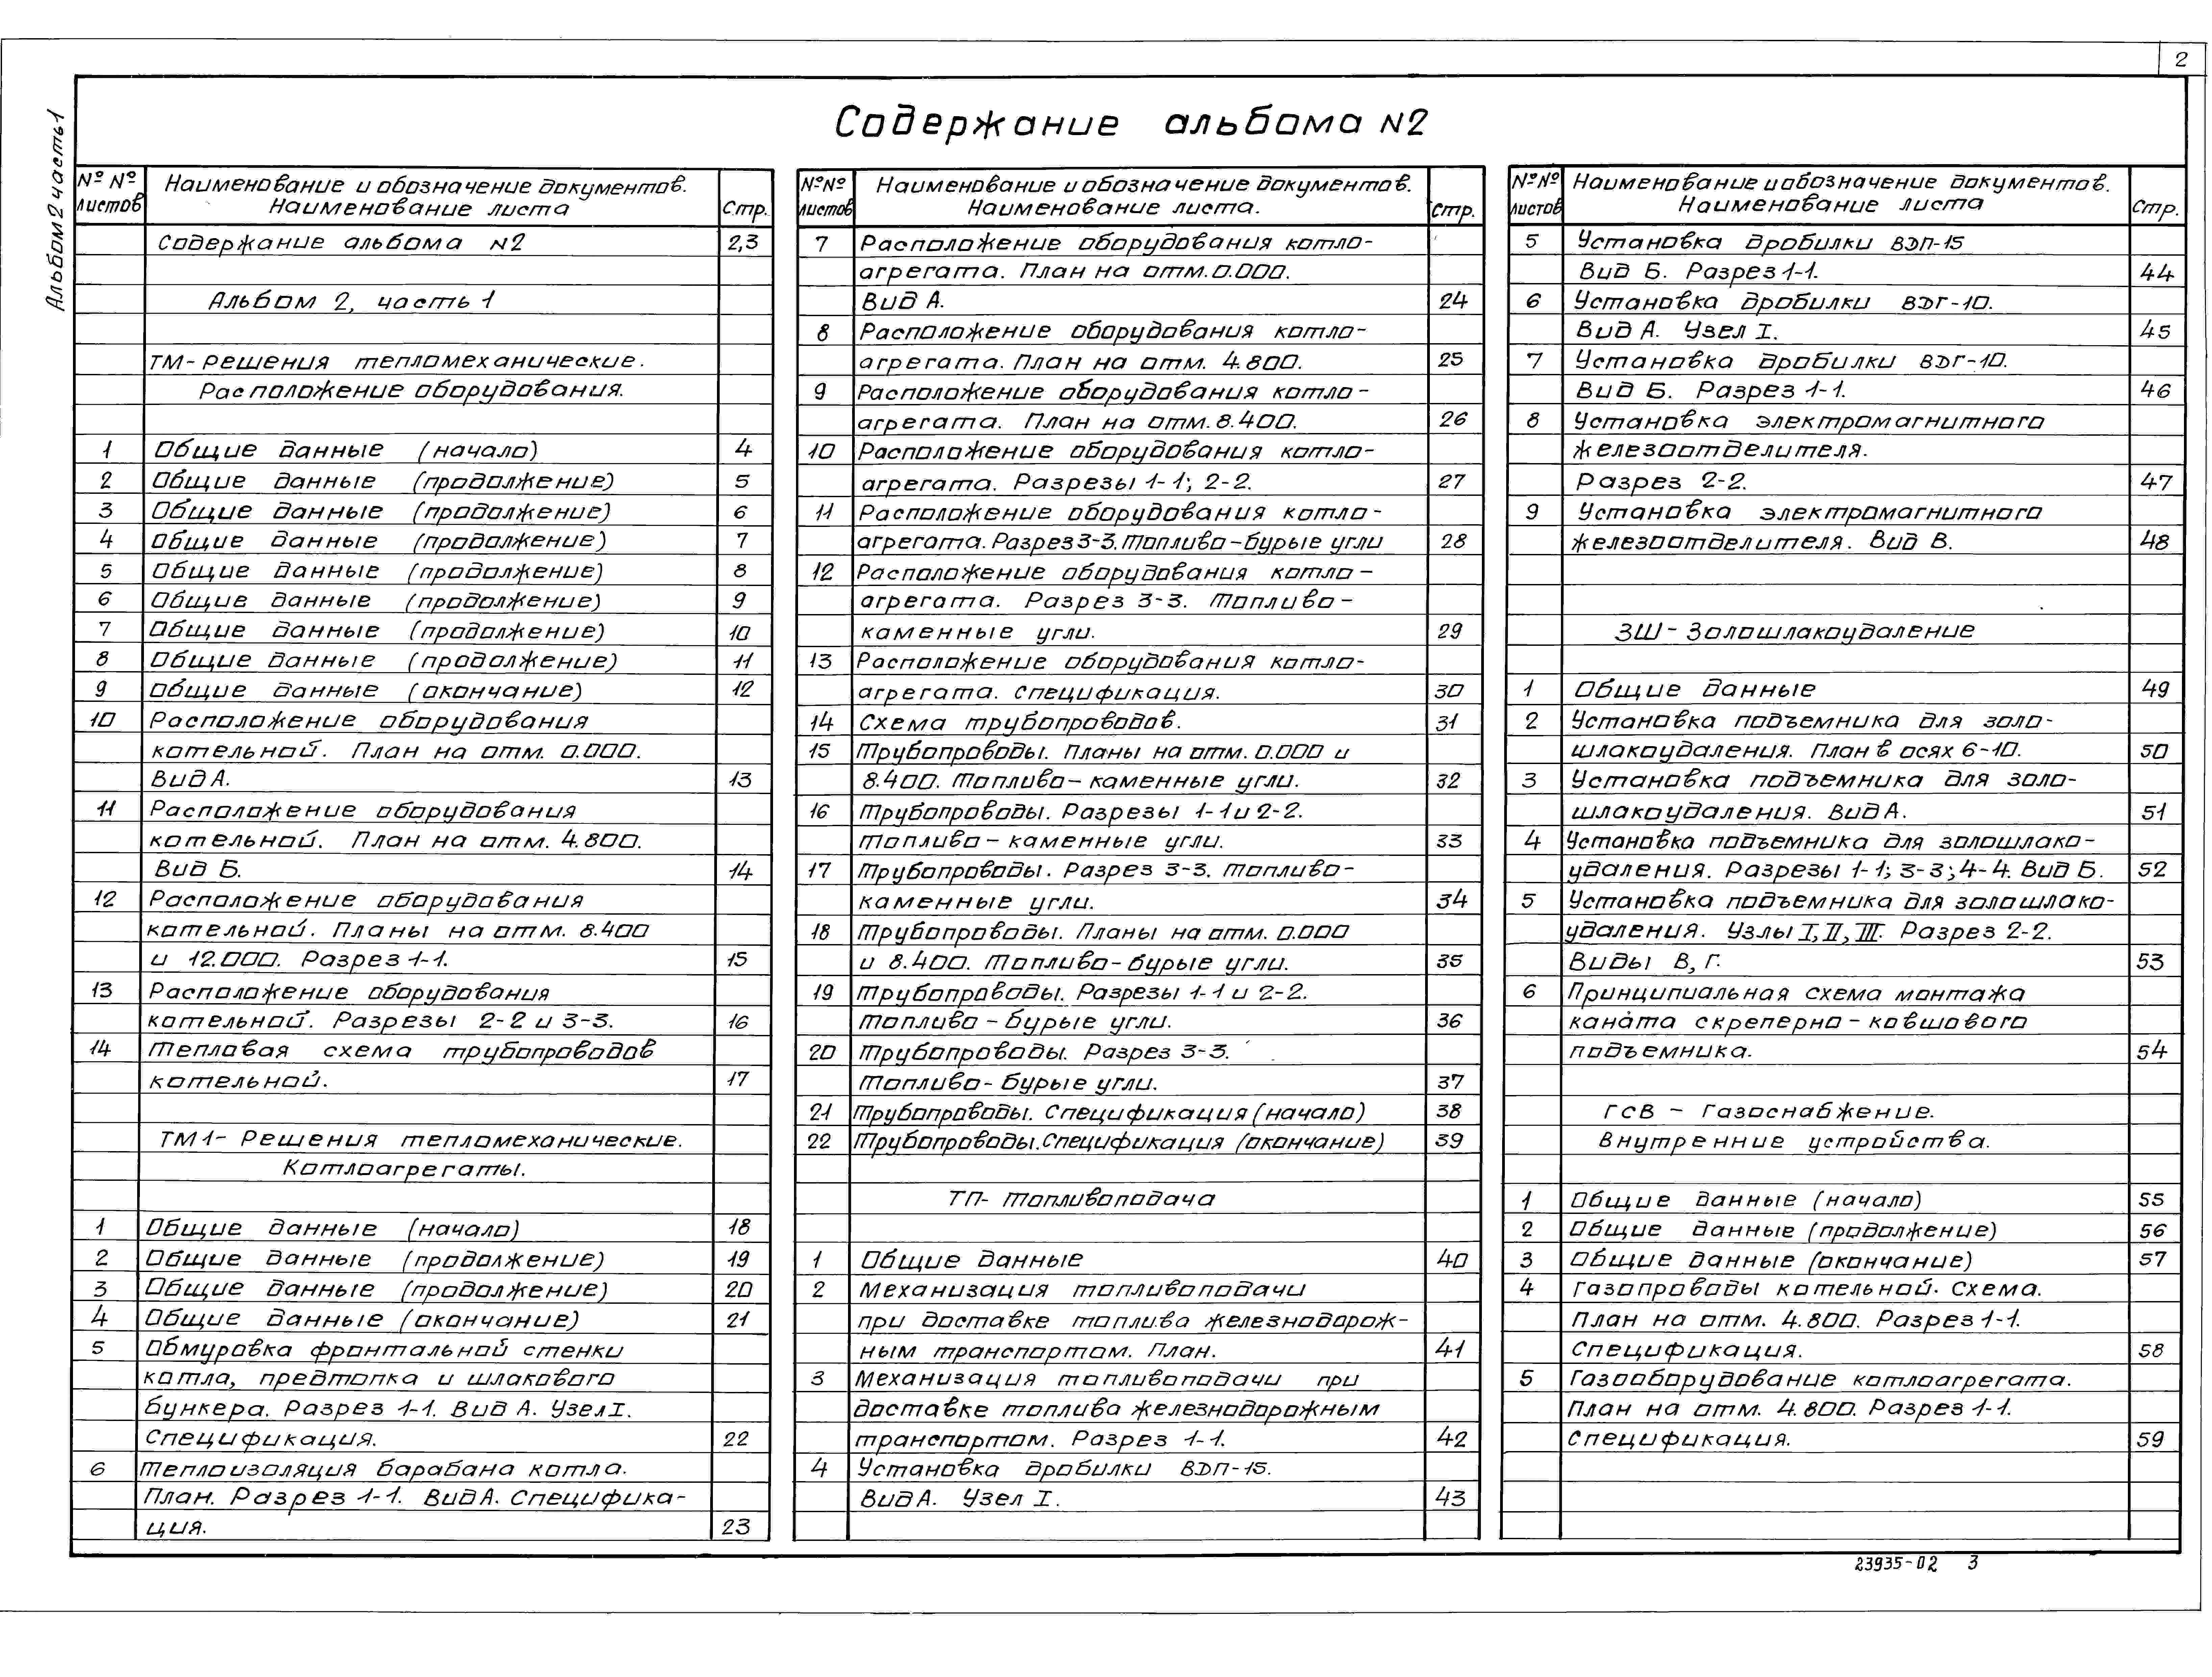 2
Альбом 2 часть 1
Содержание альбома N2
№ № листов Наименование и обозначение документов. Наименование листа Стр.
Содержание альбома N2 2,3
Альбом 2, часть 1
ТМ- Решения тепломеханические.
Расположение оборудования.
1 Общие данные (начало) 4
2 Общие данные (продолжение) 5
3 Общие данные (продолжение) 6
4 Общие данные (продолжение) 7
5 Общие данные (продолжение) 8
6 Общие данные (продолжение) 9
7 Общие данные (продолжение) 10
8 Общие данные (продолжение) 11
9 Общие данные (окончание) 12
10 Расположение оборудования
котельной. План на отм. 0.000.
Вид А. 13
11 Расположение оборудования
котельной. План на отм. 4.800.
Вид Б. 14
12 Расположение оборудования
котельной. Планы на отм. 8.400
и 12.000. Разрез 1-1. 15
13 Расположение оборудования
котельной. Разрезы 2-2 и 3-3. 16
14 Тепловая схема трубопроводов
котельной. 17
ТМ1- Решения тепломеханические.
Котлоагрегаты.
1 Общие данные (начало) 18
2 Общие данные (продолжение) 19
3 Общие данные (продолжение) 20
4 Общие данные (окончание) 21
5 Обмуровка фронтальной стенки
котла, предтопка и шлакового
бункера. Разрез 1-1. Вид А. Узел I.
Спецификация. 22
6 Теплоизоляция барабана котла.
План. Разрез 1-1. Вид А. Специфика-
ция. 23
№ № листов Наименование и обозначение документов. Наименование листа. Стр.
7 Расположение оборудования котло-
агрегата. План на отм. 0.000.
Вид А. 24
8 Расположение оборудования котло-
агрегата. План на отм. 4.800. 25
9 Расположение оборудования котло-
агрегата. План на отм. 8.400. 26
10 Расположение оборудования котло-
агрегата. Разрезы 1-1; 2-2. 27
11 Расположение оборудования котло-
агрегата. Разрез 3-3. Топливо-бурые угли 28
12 Расположение оборудования котло-
агрегата. Разрез 3-3. Топливо-
каменные угли. 29
13 Расположение оборудования котло-
агрегата. Спецификация. 30
14 Схема трубопроводов. 31
15 Трубопроводы. Планы на отм. 0.000 и
8.400. Топливо-каменные угли. 32
16 Трубопроводы. Разрезы 1-1 и 2-2.
Топливо-каменные угли. 33
17 Трубопроводы. Разрез 3-3. Топливо-
каменные угли. 34
18 Трубопроводы. Планы на отм. 0.000
и 8.400. Топливо-бурые угли. 35
19 Трубопроводы. Разрезы 1-1 и 2-2.
Топливо-бурые угли. 36
20 Трубопроводы. Разрез 3-3.
Топливо-бурые угли. 37
21 Трубопроводы. Спецификация (начало) 38
22 Трубопроводы. Спецификация (окончание) 39
ТП- Топливоподача
1 Общие данные 40
2 Механизация топливоподачи
при доставке топлива железнодорож-
ным транспортом. План. 41
3 Механизация топливоподачи при
доставке топлива железнодорожным
транспортом. Разрез 1-1. 42
4 Установка дробилки ВДП-15.
Вид А. Узел I. 43
№ № листов Наименование и обозначение документов. Наименование листа Стр.
5 Установка дробилки ВДП-15
Вид Б. Разрез 1-1. 44
6 Установка дробилки ВДГ-10.
Вид А. Узел I. 45
7 Установка дробилки ВДГ-10.
Вид Б. Разрез 1-1. 46
8 Установка электромагнитного
железоотделителя.
Разрез 2-2. 47
9 Установка электромагнитного
железоотделителя. Вид В. 48
ЗШ- Золошлакоудаление
1 Общие данные 49
2 Установка подъемника для золо-
шлакоудаления. План в осях 6-10. 50
3 Установка подъемника для золо-
шлакоудаления. Вид А. 51
4 Установка подъемника для золошлако-
удаления. Разрезы 1-1; 3-3; 4-4. Вид Б. 52
5 Установка подъемника для золошлако-
удаления. Узлы I, II, III. Разрез 2-2.
Виды В, Г. 53
6 Принципиальная схема монтажа
каната скреперно-ковшового
подъемника. 54
ГСВ - Газоснабжение.
Внутренние устройства.
1 Общие данные (начало) 55
2 Общие данные (продолжение) 56
3 Общие данные (окончание) 57
4 Газопроводы котельной. Схема.
План на отм. 4.800. Разрез 1-1.
Спецификация. 58
5 Газооборудование котлоагрегата.
План на отм. 4.800. Разрез 1-1.
Спецификация. 59
23935-02 3